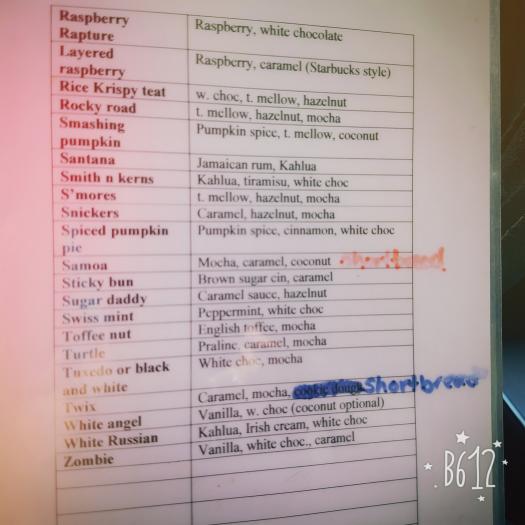 Raspberry Rapture Raspberry, white chocolate
Layered raspberry Raspberry, caramel (Starbucks style)
Rice Krispy teat w. choc, t. mellow, hazelnut
Rocky road t. mellow, hazelnut, mocha
Smashing pumpkin Pumpkin spice, t. mellow, coconut
Santana Jamaican rum, Kahlua
Smith n kerns Kahlua, tiramisu, white choc
S'mores t. mellow, hazelnut, mocha
Snickers Caramel, hazelnut, mocha
Spiced pumpkin pie Pumpkin spice, cinnamon, white choc
Samoa Mocha, caramel, coconut shortbread
Sticky bun Brown sugar cin, caramel
Sugar daddy Caramel sauce, hazelnut
Swiss mint Peppermint, white choc
Toffee nut English toffee, mocha
Turtle Praline, caramel, mocha
Tuxedo or black and white White choc, mocha
Twix Caramel, mocha, cookie dough Shortbread
White angel Vanilla, w. choc (coconut optional)
White Russian Kahlua, Irish cream, white choc
Zombie Vanilla, white choc., caramel
B612